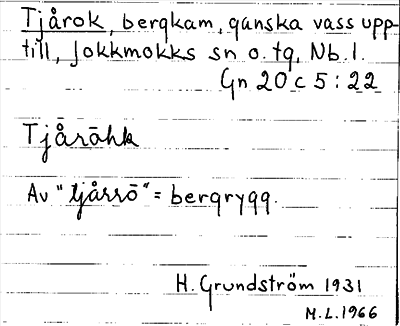 Tjårok, bergkam, ganska vass upp-
till, Jokkmokks sn o. tg, Nb. l.
Gn 20 c 5 : 22
Tjåråhk
Av "tjårrō" = bergrygg.
H. Grundström 1931
M.L. 1966